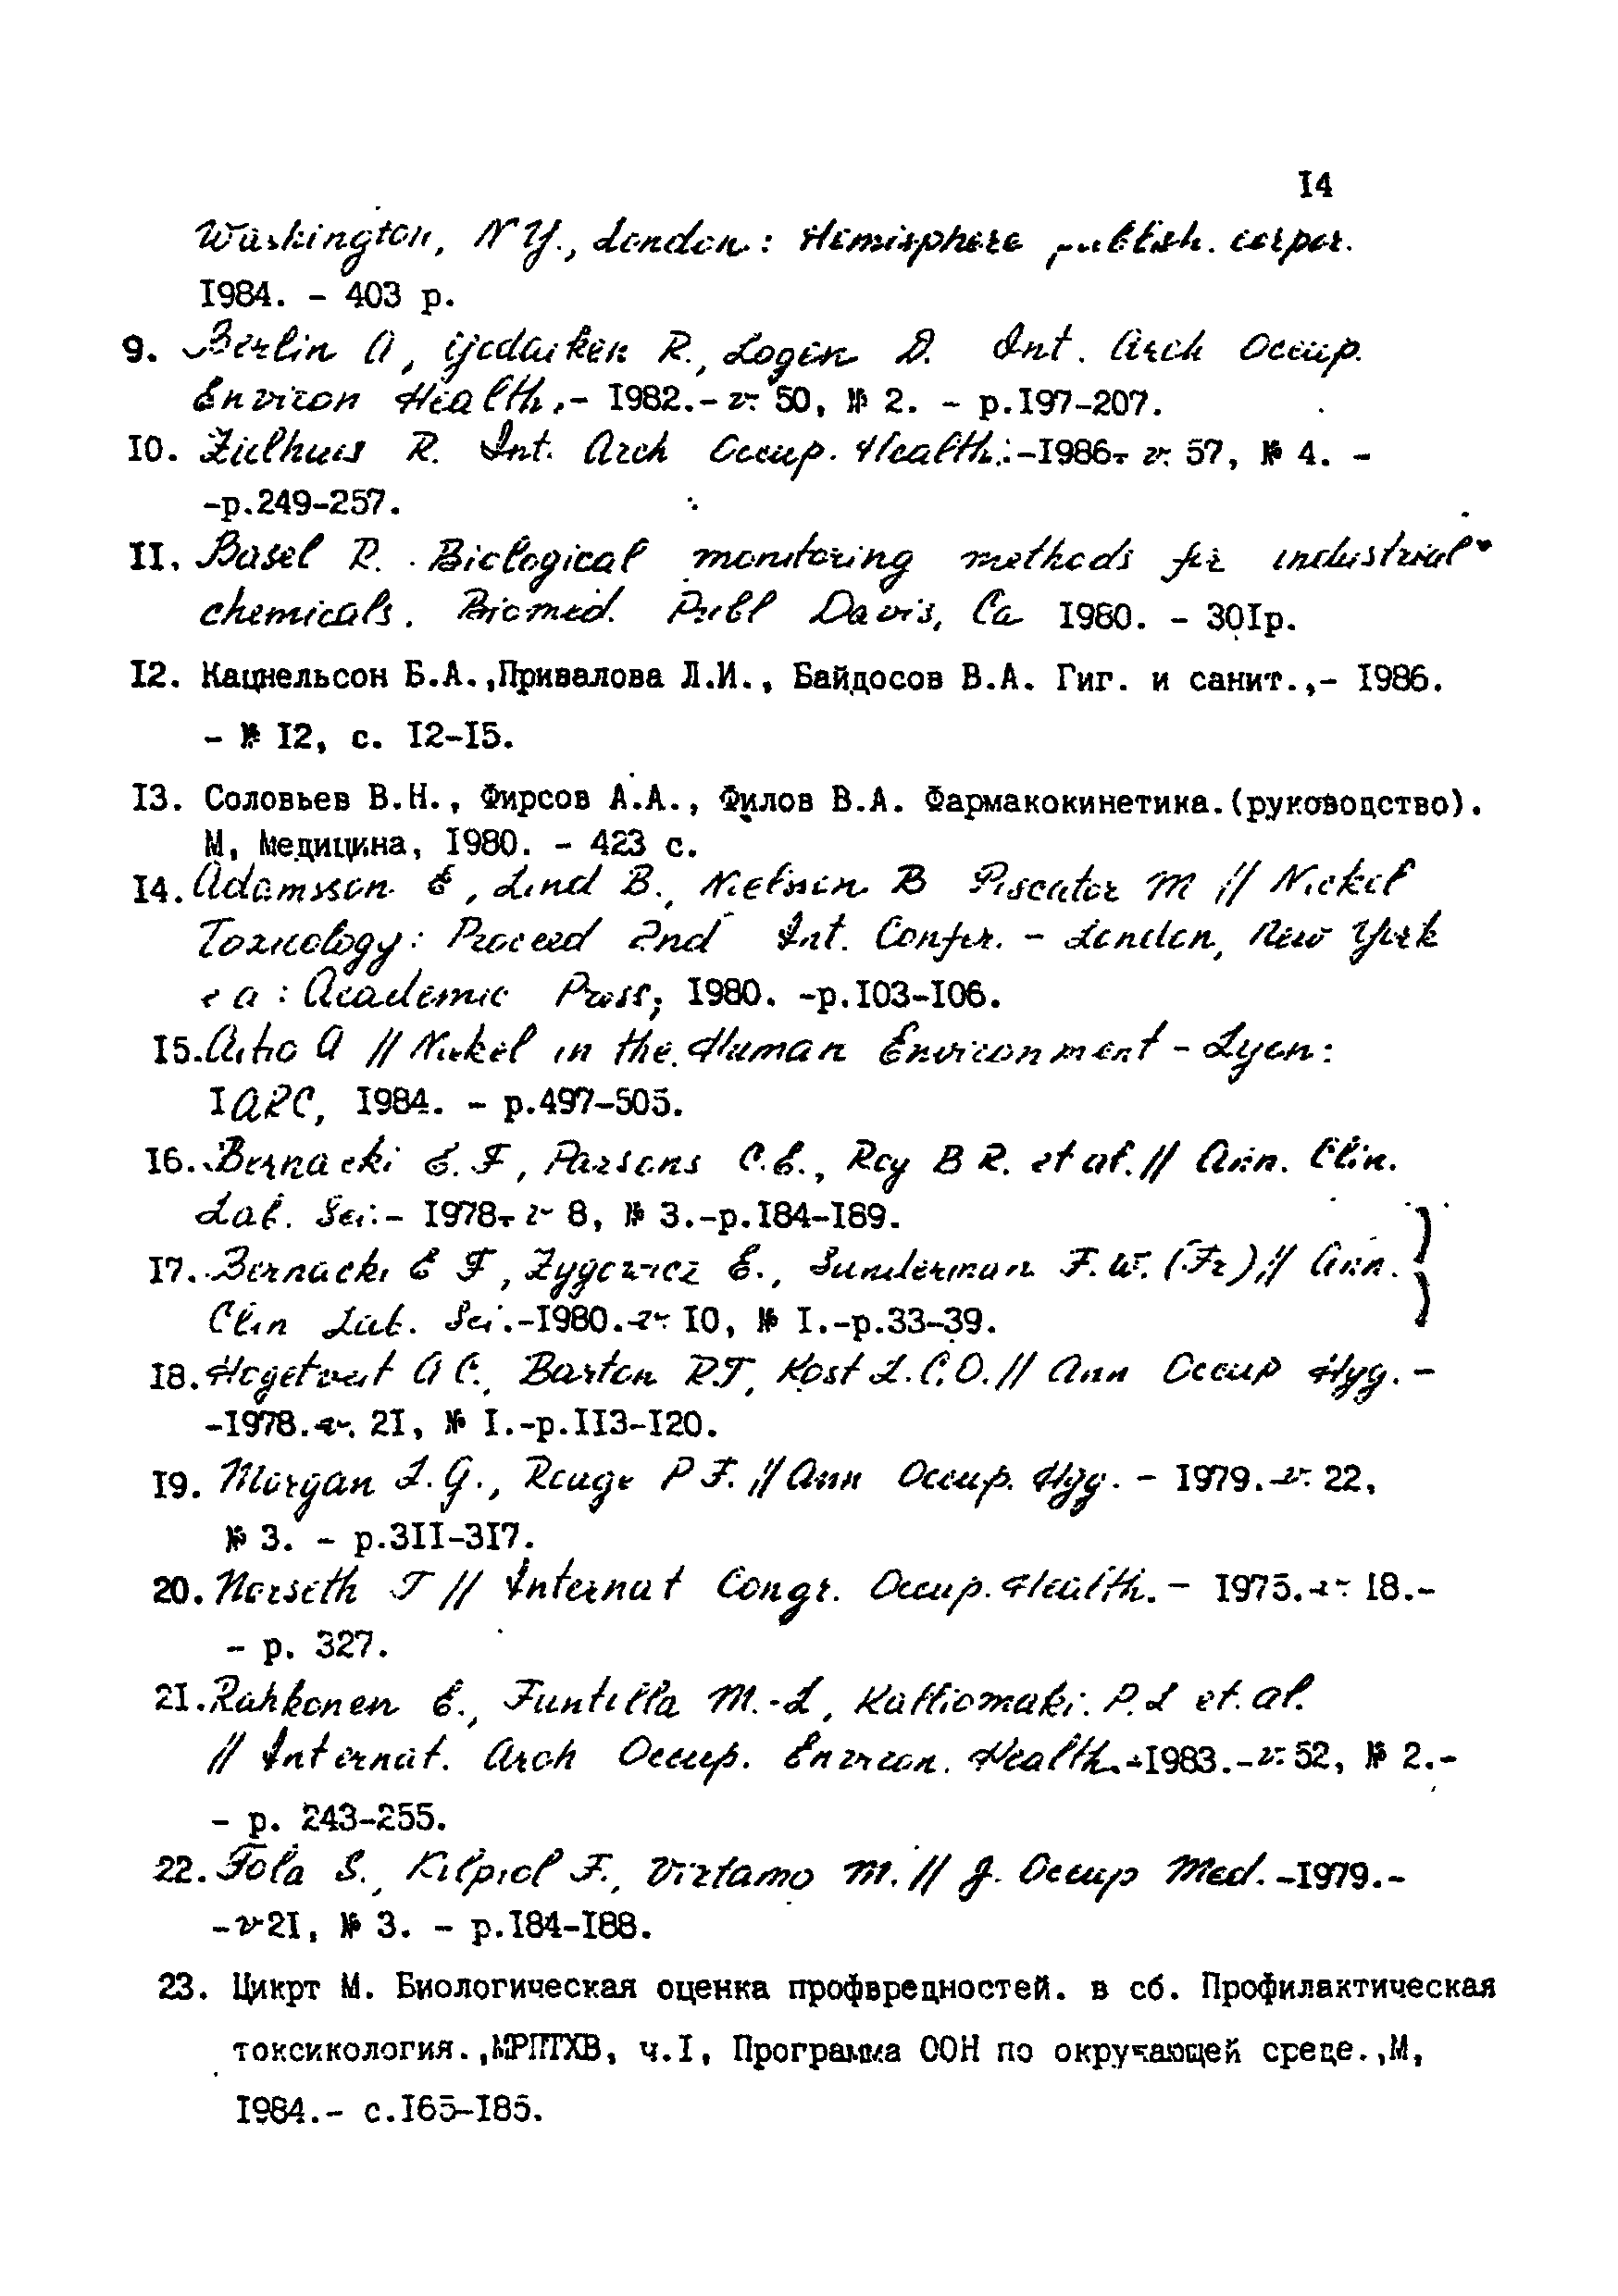 14
Washington, N Y., London.: Hemisphere publish. corpor.
1984. - 403 p.
9. Berlin A, Yodaiken R., Logen D. Int. Arch Occup.
Environ Health.- 1982.- v. 50, № 2. - p.197-207.
10. Zielhuis R. Int. Arch Occup. Health.:-1986- v. 57, № 4. -
-p.249-257.
11. Basel R. Biological monitoring methods for industrial
chemicals. Biomed. Publ Davis, Ca 1980. - 301p.
12. Кацнельсон Б.А.,Привалова Л.И., Байдосов В.А. Гиг. и санит.,- 1986.
- № 12, с. 12-15.
13. Соловьев В.Н., Фирсов А.А., Филов В.А. Фармакокинетика.(руководство).
М, Медицина, 1980. - 423 с.
14. Adamsson E, Lind B., Nielsen B Piscator M // Nickel
Toxicology: Proceed 2nd Int. Confer. - London, New York
e a : Academic Press, 1980. -p.103-106.
15. Aitio A // Nickel in the Human Environment - Lyon:
IARC, 1984. - p.497-505.
16. Bernacki E. F, Parsons C.E., Roy B R. et al. // Ann. Clin.
Lab. Sci.- 1978- v 8, № 3.-p.184-189.
17. Bernacki E F, Zygowicz E., Sunderman F.W. (Fr) // Ann.
Clin Lab. Sci.-1980.-v. 10, № 1.-p.33-39.
18. Hogetveit A C., Barton R.T, Kost L.C.O. // Ann Occup Hyg. -
-1978.-v. 21, № 1.-p.113-120.
19. Morgan L.G., Rouge P J. // Ann Occup. Hyg. - 1979.-v. 22,
№ 3. - p.311-317.
20. Norseth T // Internat Congr. Occup. Health. - 1975.-v. 18.-
- p. 327.
21. Rahkonen E., Funtilla M.-L, Kalliomaki. P.L et. al.
// Internat. Arch Occup. Environ. Health.-1983.-v. 52, № 2.-
- p. 243-255.
22. Tola S., Kilpiol F., Virtamo M. // J. Occup Med. -1979.-
-v 21, № 3. - p.184-188.
23. Цикрт М. Биологическая оценка профвредностей. в сб. Профилактическая
токсикология.,МРПТХВ, ч.1, Программа ООН по окружающей среде.,М,
1984.- с.165-185.